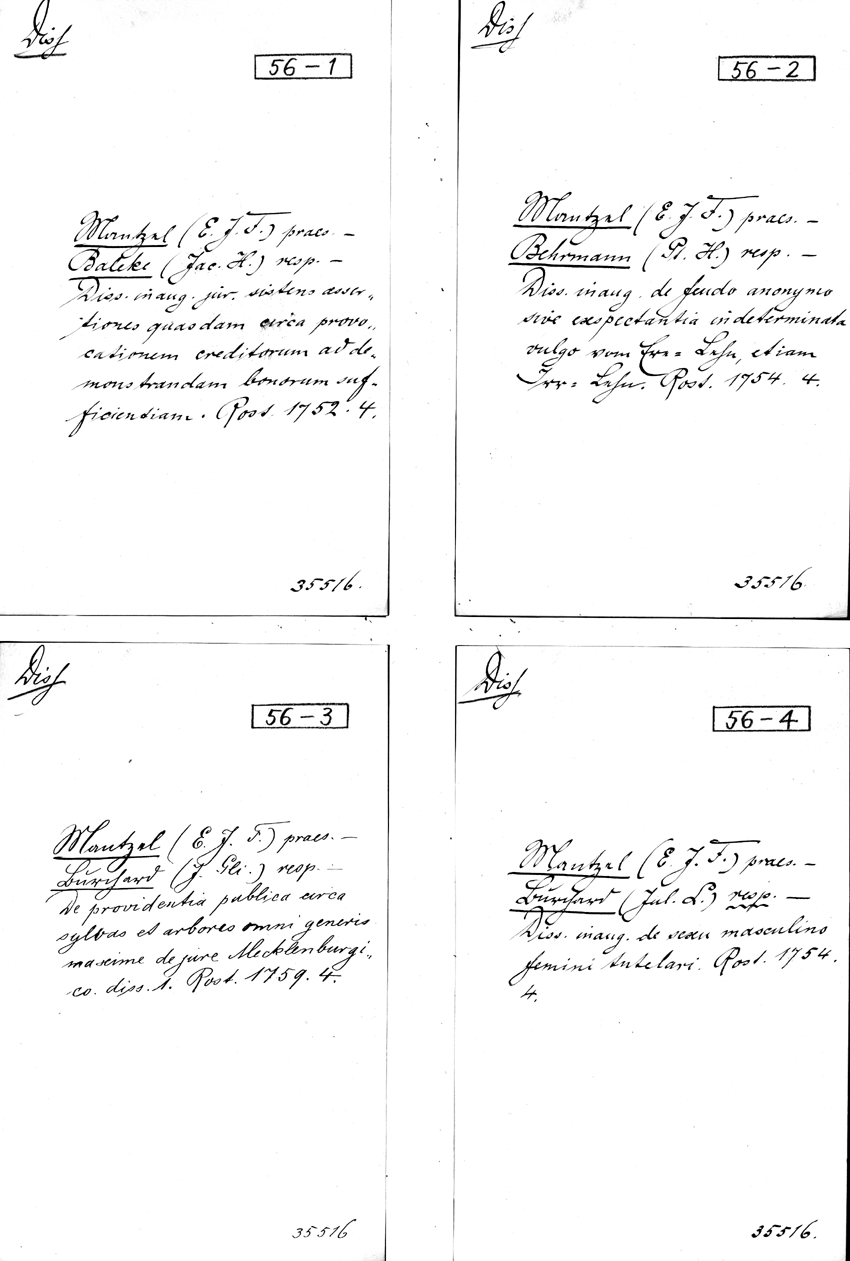 Diss
56-1
Mantzel (E. J. F.) praes. —
Balcke (Jac. H.) resp. —
Diss. inaug. jur. sistens asser-
tiones quasdam circa provo-
cationem creditorum ad de-
monstrandam bonorum suf-
ficientiam. Rost. 1752. 4.
35516.
Diss
56-2
Mantzel (E. J. F.) praes. —
Behrmann (Pt. H.) resp. —
Diss. inaug. de feudo anonymo
sive exspectantia indeterminata
vulgo vom Ere-Lehn, etiam
Irr-Lehn. Rost. 1754. 4.
35516.
Diss
56-3
Mantzel (E. J. F.) praes. —
Burchard (J. Gli.) resp. —
De providentia publica circa
sylvas et arbores omni generis
maxime de jure Mecklenburgi-
co. diss. 1. Rost. 1759. 4.
35516
Diss
56-4
Mantzel (E. J. F.) praes. —
Burchard (Jul. L.) resp. —
Diss. inaug. de sexu masculino
femini tutelari. Rost. 1754.
4.
35516.